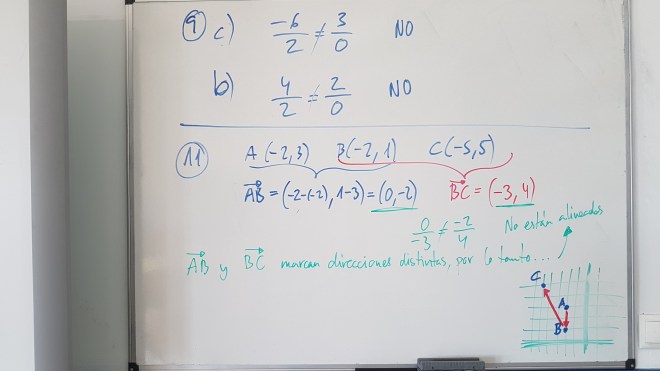 9 c) -6/2 ≠ 3/0 NO
b) 4/2 ≠ 2/0 NO
11 A(-2,3) B(-2,1) C(-5,5)
AB = (-2-(-2), 1-3) = (0,-2) BC = (-3,4)
0/-3 ≠ -2/4 No están alineados
AB y BC marcan direcciones distintas, por lo tanto...
C
A
B